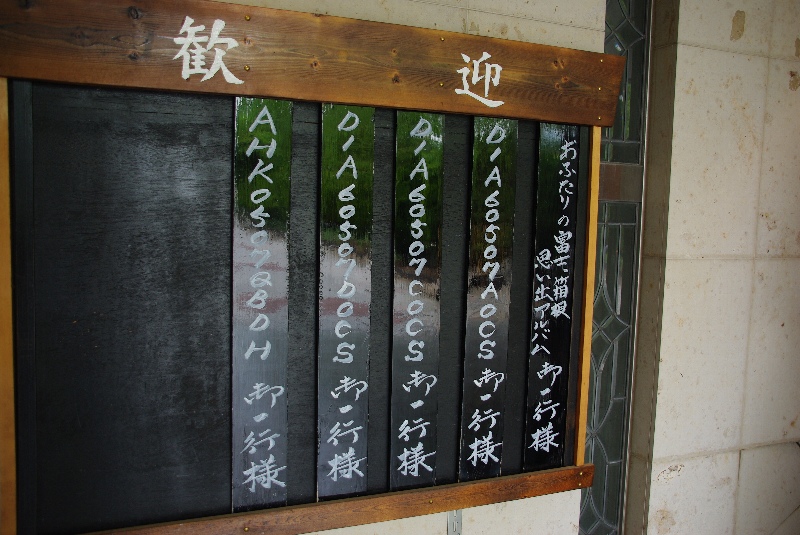 歓迎
おふたりの富士、箱根
思い出アルバム 御一行様
DIA60507AOCS 御一行様
DIA60507COCS 御一行様
DIA60507DOCS 御一行様
AHK0507QBDH 御一行様